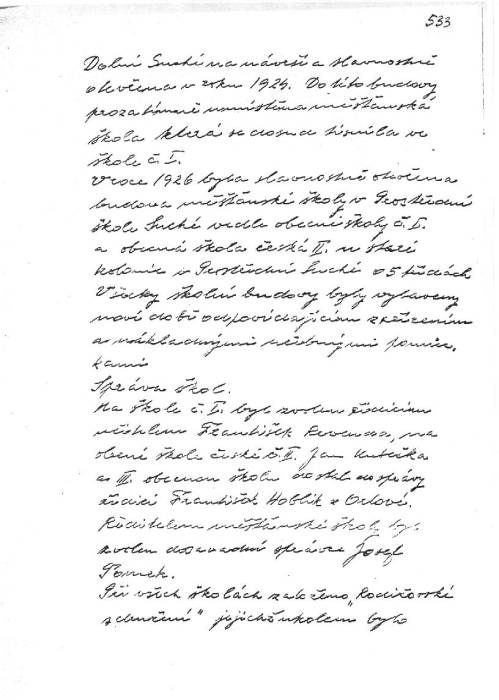 533
Dolní Suché na návsi a slavnostně
otevřena v roku 1924. Do této budovy
prozatímně umístěna měšťanská
škola která se dosud tísnila ve
škole č. I.
V roce 1926 byla slavnostně otevřena
budova měšťanské školy v Prostřední
škole Suché vedle obecní školy č. I.
a obecná škola česká II. u staré
kolonie v Prostřední Suché o 5 třídách
Všecky školní budovy byly vybaveny
nově době odpovídajícím zařízením
a nákladnými učebnými pomůc-
kami
Správa škol.
Na škole č. I. byl zvolen řídícím
učitelem František Revenda, na
obecné škole české č. II. Jan
a III. obecnou školu dostal do správy
řídící František Hoblík z Orlové.
Ředitelem měšťanské školy byl
zvolen dosavadní správce Josef
Při všech školách založeno „Rodičovské
sdružení" jejichž úkolem bylo